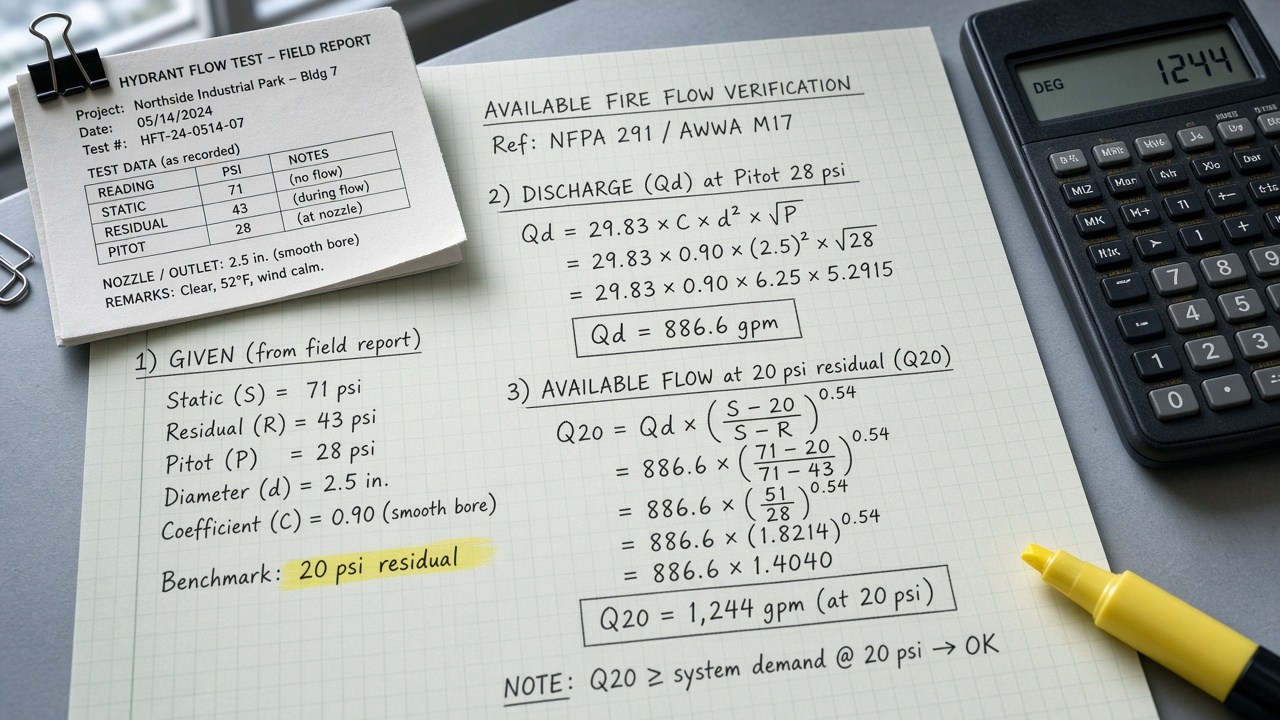 HYDRANT FLOW TEST – FIELD REPORT
Project: Northside Industrial Park – Bldg 7
Date: 05/14/2024
Test #: HFT-24-0514-07
TEST DATA (as recorded)
READING PSI NOTES
STATIC 71 (no flow)
RESIDUAL 43 (during flow)
PITOT 28 (at nozzle)
NOZZLE / OUTLET: 2.5 in. (smooth bore)
REMARKS: Clear, 52°F, wind calm.
1) GIVEN (from field report)
Static (S) = 71 psi
Residual (R) = 43 psi
Pitot (P) = 28 psi
Diameter (d) = 2.5 in.
Coefficient (C) = 0.90 (smooth bore)
Benchmark: 20 psi residual
AVAILABLE FIRE FLOW VERIFICATION
Ref: NFPA 291 / AWWA M17
2) DISCHARGE (Qd) at Pitot 28 psi
Qd = 29.83 × C × d² × √P
= 29.83 × 0.90 × (2.5)² × √28
= 29.83 × 0.90 × 6.25 × 5.2915
Qd = 886.6 gpm
3) AVAILABLE FLOW at 20 psi residual (Q20)
Q20 = Qd × (S – 20 / S – R)^0.54
= 886.6 × (71 – 20 / 71 – 43)^0.54
= 886.6 × (51 / 28)^0.54
= 886.6 × (1.8214)^0.54
= 886.6 × 1.4040
Q20 = 1,244 gpm (at 20 psi)
NOTE: Q20 ≥ system demand @ 20 psi → OK
DEG 1244
7 8 9
4 5 6
1 2 3
0 ·